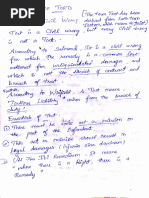 TORTS
[The term Tort has been
Civil Wrong derived from Latin term
Tortum which means to twist]
Tort is a civil wrong but every civil wrong
is not a Tort.
According to Salmond. It is a civil wrong
for which the remedy is a common law
action unliquidated damages and
which is not the breach of contract and
breach of trust.
According to Winfield. A Tort means →
Tortious Liability arises from the breach of
duty.
Essentials of Tort
① There must be some act or omission on
the part of the defendant.
② This act or omission should result in
legal damages (injuria sine damno)
③ (Ubi Jus Ibi Remedium) It means
where there is a Right, there is a
Remedy